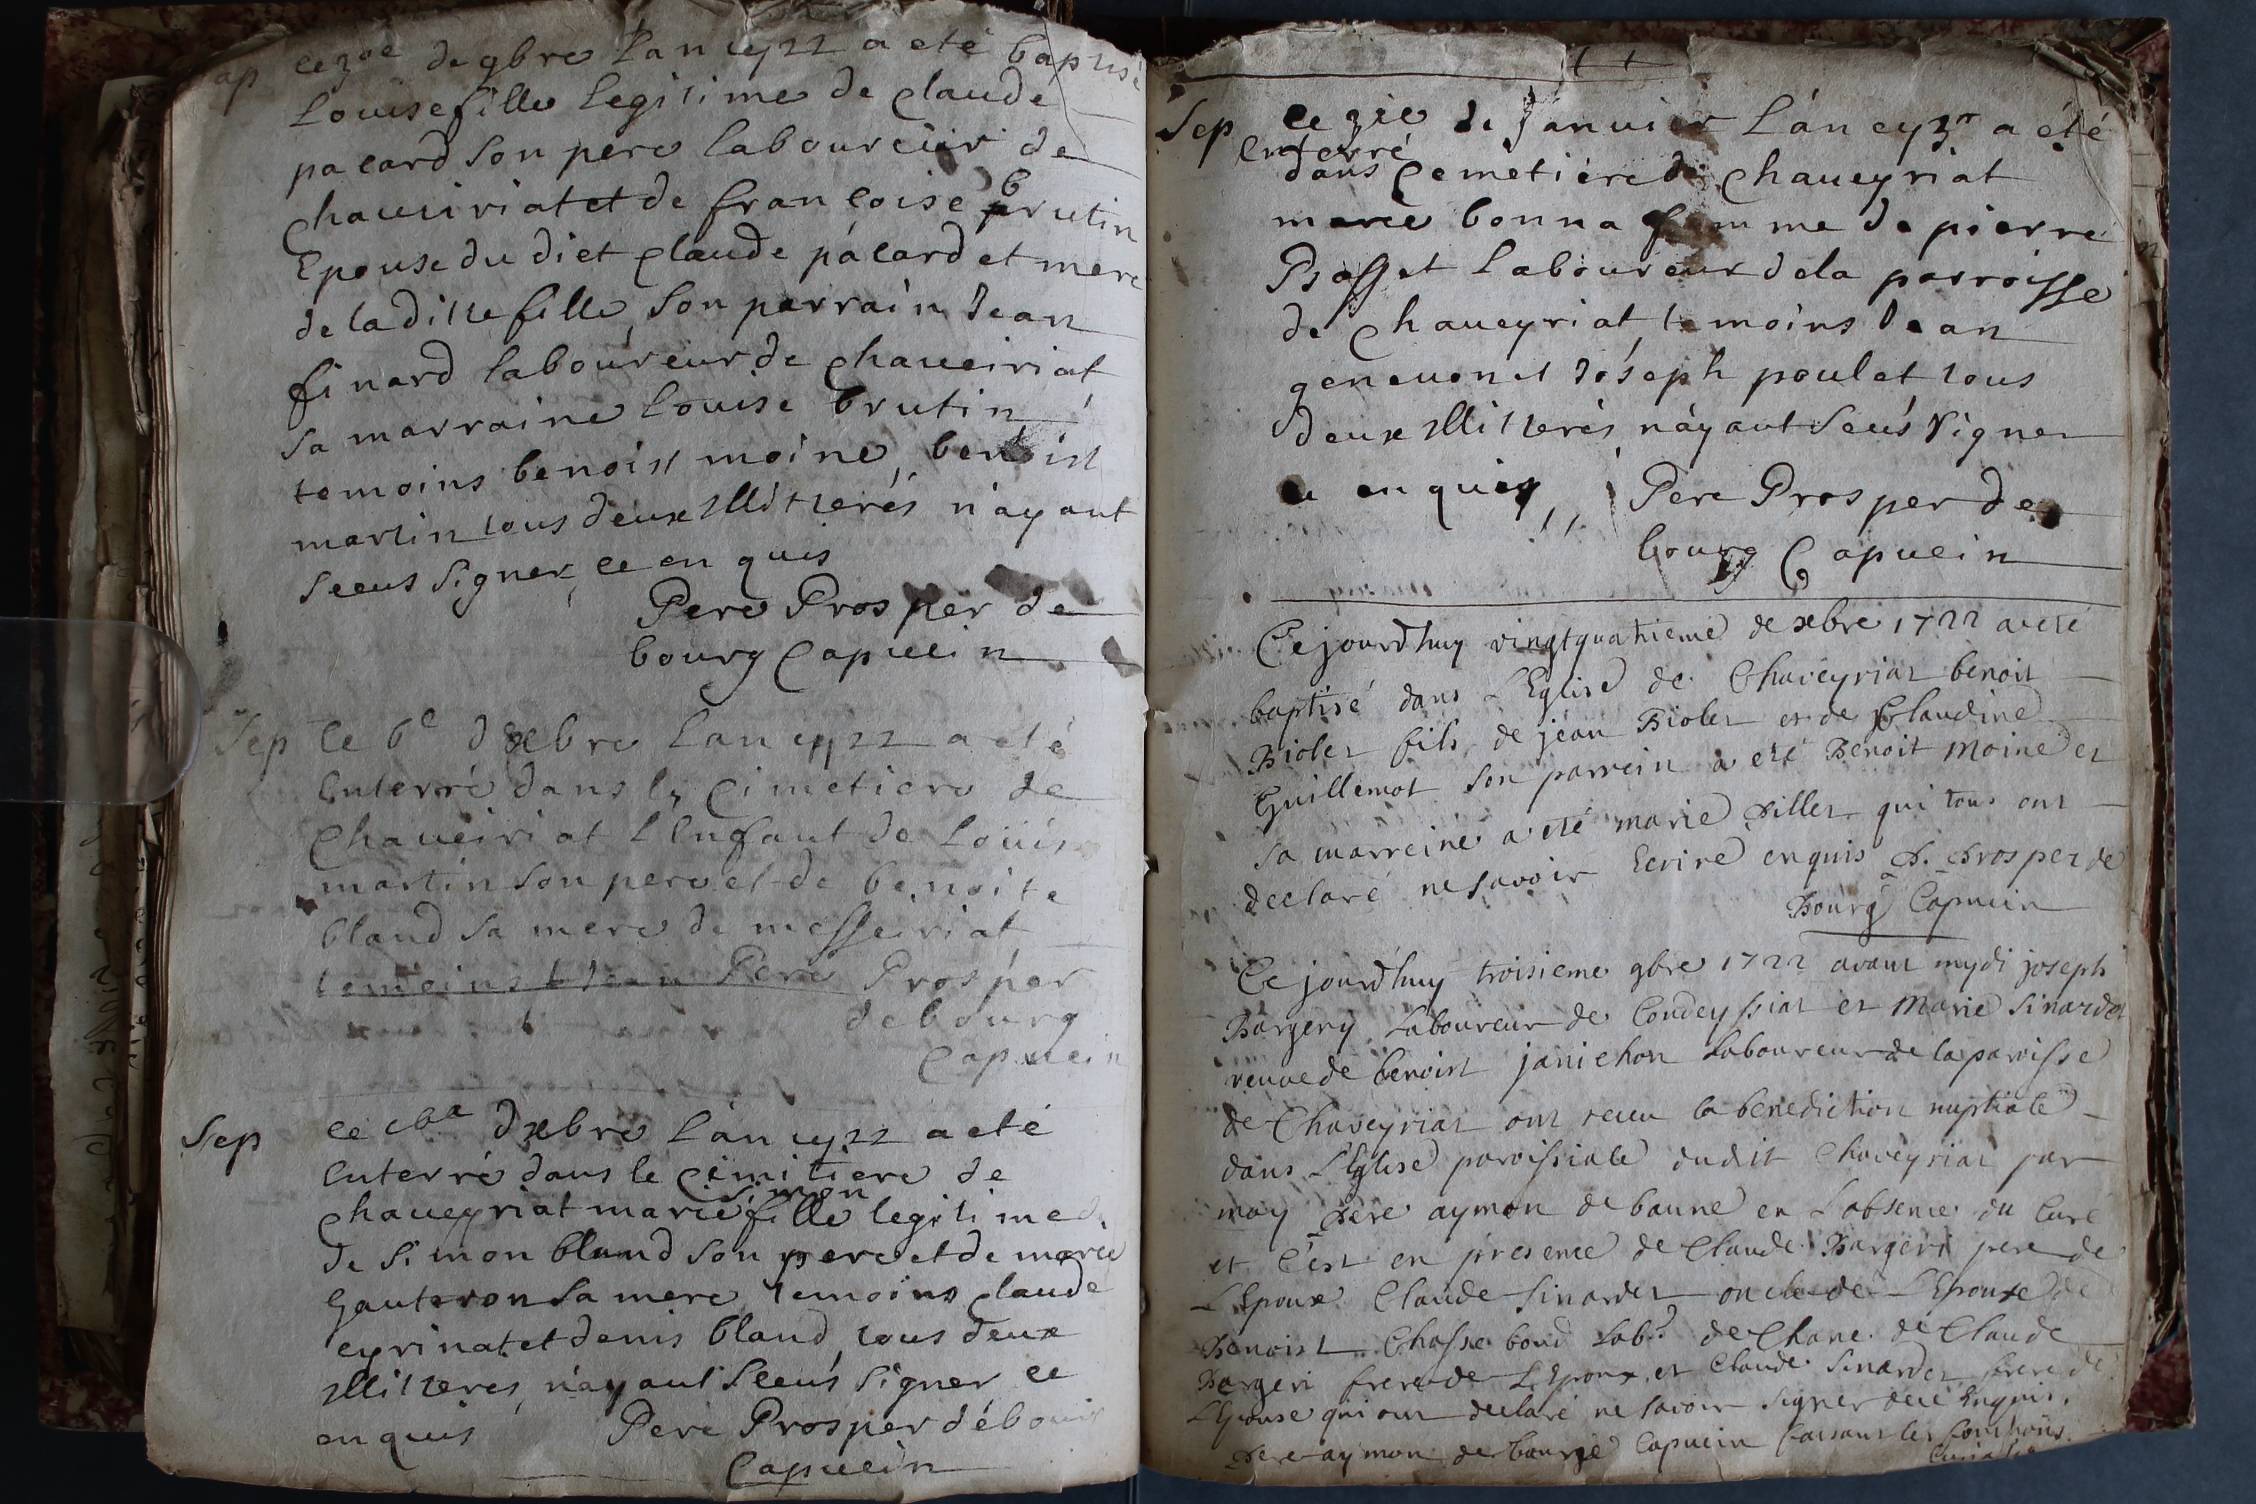 bap ce 30e de 9bre Lan cy22 a eté baptisé
Louise fille Legitime de claude
pacard son pere laboureur de
chaveiriat et de francoise brutin
Epouse du dict claude pácard et mere
de la ditte fille, son parrain Jean
finard laboureur de chaveiriat
sa marraine Louise brutin
temoins benoist moine, benoist
martin tous deux Illitterés n'ayant
sceus signer, ce enquis
Pere Prosper de
bourg Capucin
Sep ce 6e dxbre Lan cy22 a eté
Enterré dans le Cimetiere de
Chaveiriat L'Enfant de Loüis
martin son pere et de benoite
bland sa mere de messeiriat
temoins Jean Pere Prosper
de bourg
Capucin
Sep ce dxbre Lán cy22 a eté
Enterré dans le Cimitiere de
simon
chaveyriat marie fille legitime
de Simon bland son pere et de marie
Gauteron sa mere, temoins claude
eyrinat et denis bland, tous deux
Illitteres, n'ayant sceus signer ce
enquis Pere Prosper dé bourg
Capucin
Sep ce 2ie de Janvier Lán cy23 a été
Enterré
dans Cemetiére de Chaveyriat
marie bonna femme de pierre
Bosset Laboureur de la parroisse
de Chaveyriat, temoins Jean
genevon et Jóseph poulet tous
deux Illitterés, n'ayant sceus signer
ce enquis Pere Prosper de
bourg Capucin
Ce jourdhuy vingtquatrieme de xbre 1722 a eté
baptisé dans L'Eglise de Chaveyriat benoit
Biolet fils de jean Biolet et de Claudine
Guillemot son parrein a eté Benoit Moine et
sa marreine a eté marie Pillet qui tous ont
declaré ne savoir Ecrire enquis P. Prosper de
Bourg Capucin
Ce jourdhuy troisieme 9bre 1722 avant mydi joseph
Bargery Laboureur de Condeyssiat et Marie Sinardet
veuve de benoist janichon Laboureur de la paroisse
de Chaveyriat ont receu la benediction nuptiale
dans L'Eglise paroissiale dudit Chaveyriat par
moy Pere aymon de baune en L'absence du Curé
et C'est en presence de Claude Bargeri pere de
L'Epoux Claude Sinardet oncle de L'Epouse de
Benoist Chasseboud Labr de Chave. de Claude
Bargeri frere de L'Epoux, et Claude Sinardet frere de
L'Epouse qui ont declaré ne savoir signer de ce Enquis.
Pere aymon de Capucin faisant les fonctions